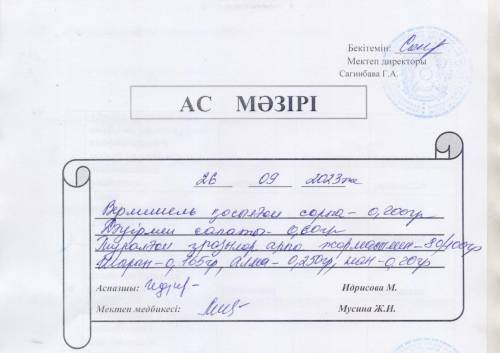 Бекітемін:
Мектеп директоры
Сагинбава Г.А.
АС МӘЗІРІ
26 09 2023ж
Вермишель қосылған сорпа - 0,200гр
салаты - 0,60гр
арпа жармасымен - 80/100гр
0,165гр, Алма - 0,250гр, нан - 0,20гр
Аспазшы: Идрисова М.
Мектеп медбикесі: Мусина Ж.И.